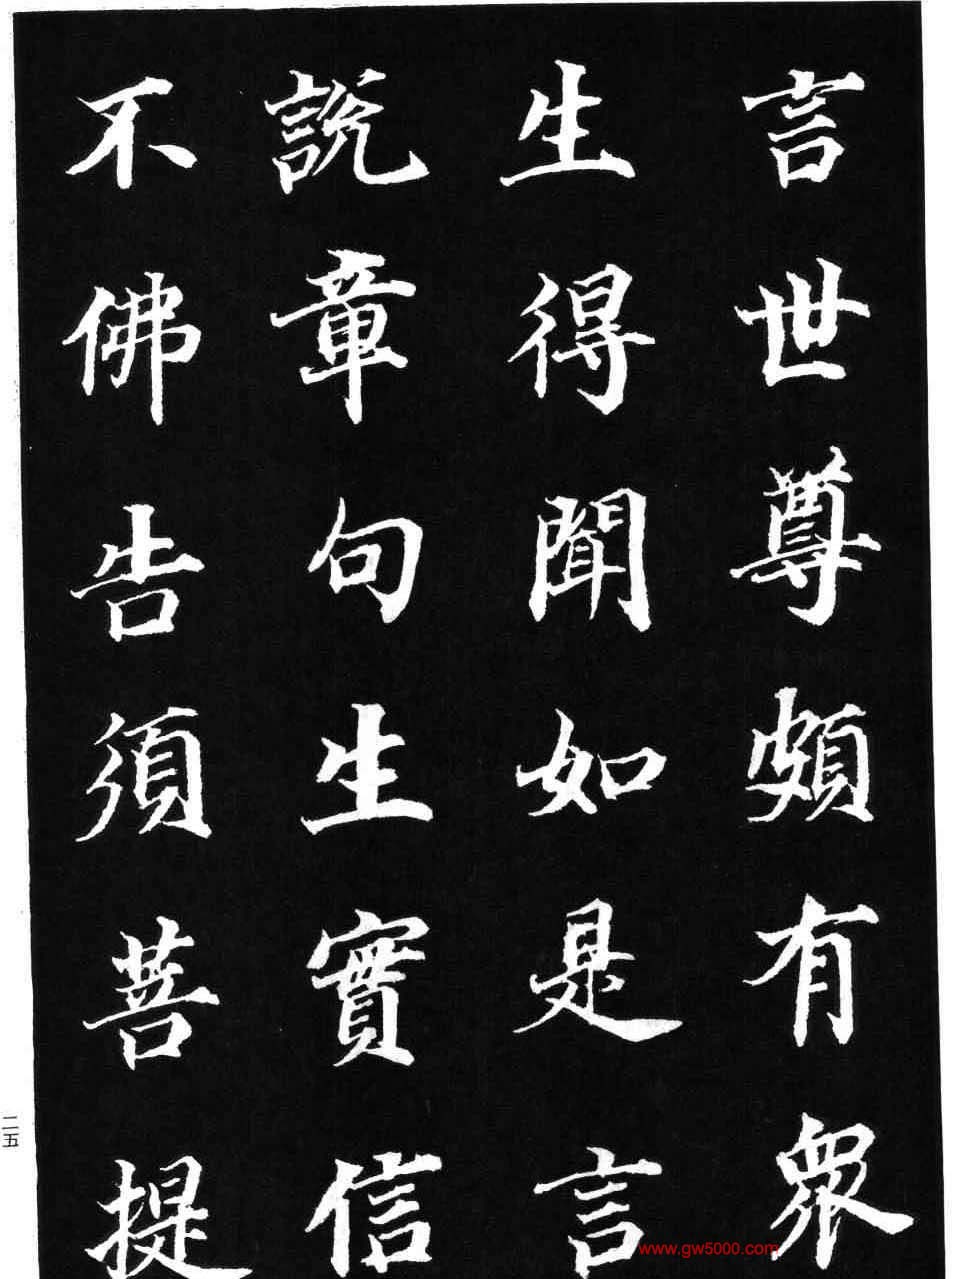 言世尊頗有眾
生得聞如是言
說章句生實信
不佛告須菩提
二五
www.gw5000.com